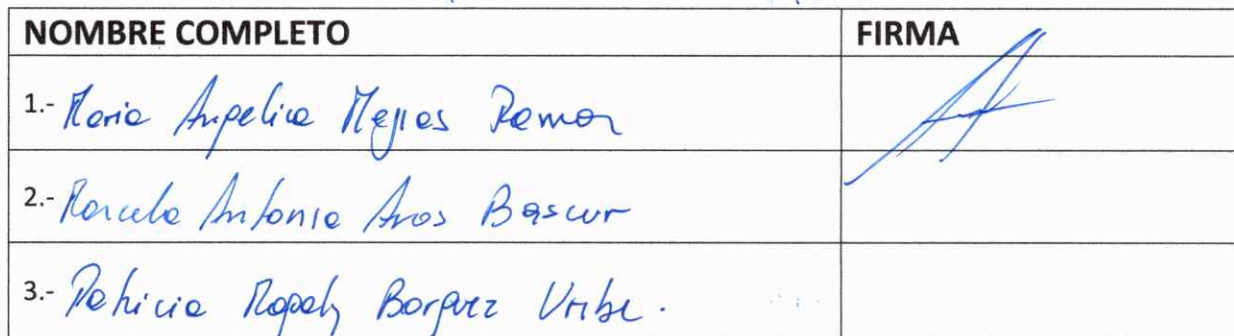 NOMBRE COMPLETO FIRMA
1.- Maria Angelica Mejias Ramon
2.- Marcela Antonia Aros Bascur
3.- Patricia Borquez Uribe.